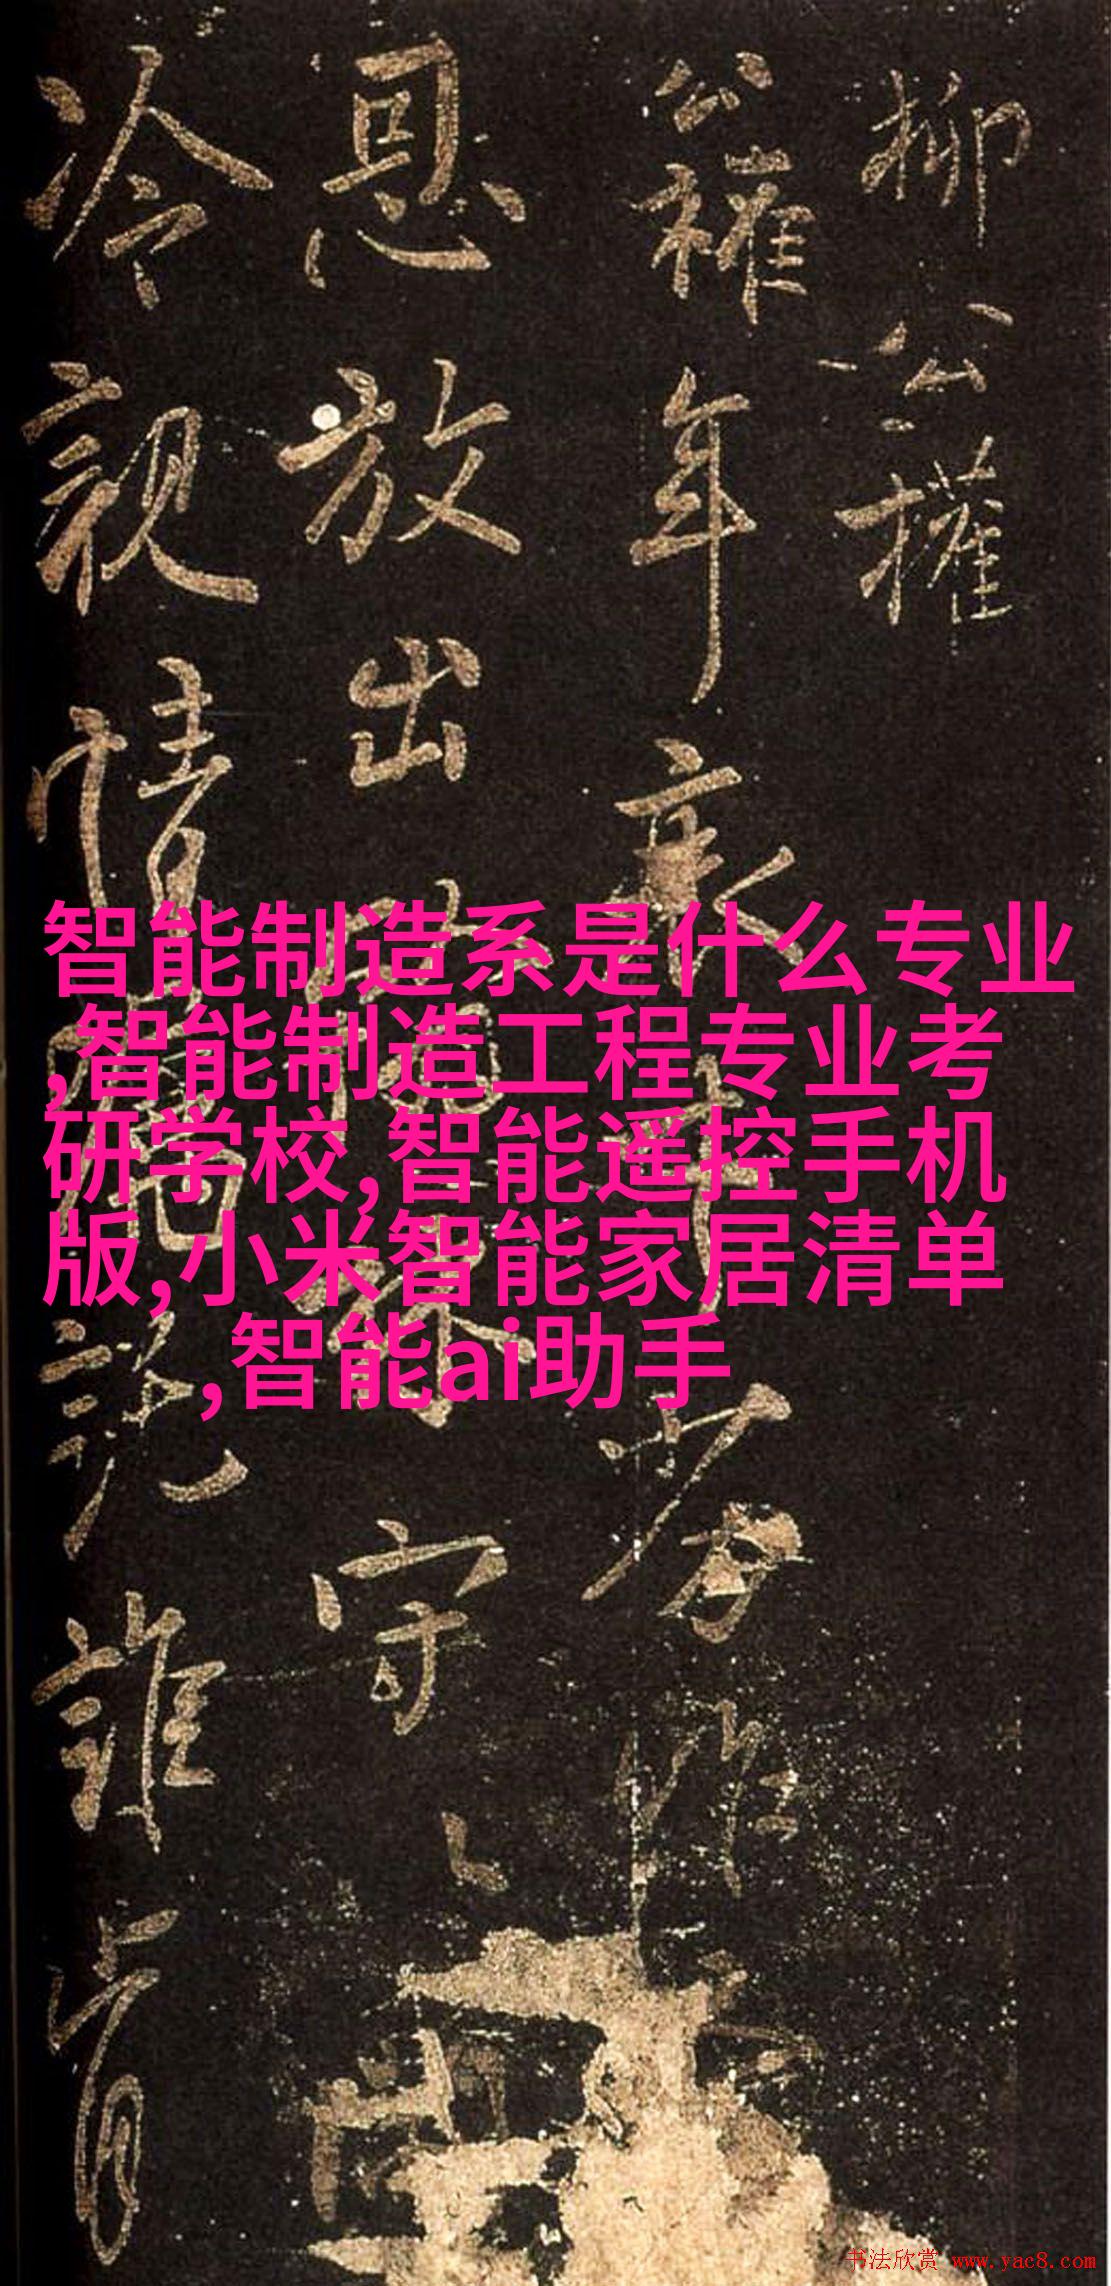 柳公權
公權年衰才劣昨
恩放出翰林守
冷親情囑託誰肯
智能制造系是什么专业
,智能制造工程专业考
研学校,智能遥控手机
版,小米智能家居清单
,智能ai助手
书法欣赏 www.yac8.com